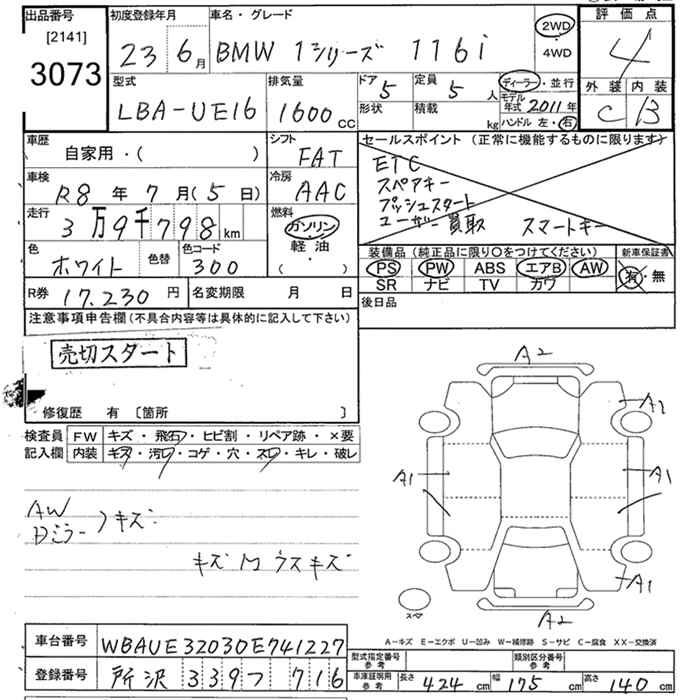 出品番号
[2141]
3073
初度登録年月
23 6月
車名・グレード
BMW 1シリーズ 116i
2WD
・
4WD
評価点
4
外装 内装
C B
型式
LBA-UE16
排気量
1600cc
ドア 5
形状
定員 5人
積載 kg
ディーラー・並行
モデル年式 2011年
ハンドル 左・右
車歴
自家用・( )
シフト
FAT
車検
R8年 7月(5日)
冷房
AAC
走行
3万9千798km
燃料
ガソリン
・
軽油
・
( )
色
ホワイト
色替
色コード
300
R券 17,230円
名変期限 月 日
セールスポイント (正常に機能するものに限ります)
ETC
スペアキー
プッシュスタート
ユーザー買取 スマートキー
装備品(純正品に限り〇をつけてください)
PS PW ABS エアB AW
SR ナビ TV カワ
新車保証書
有・無
後日品
注意事項申告欄(不具合内容等は具体的に記入して下さい)
売切スタート
修復歴 有 〔箇所 〕
検査員記入欄
FW キズ・飛石・ヒビ割・リペア跡・×要
内装 キズ・汚レ・コゲ・穴・スレ・キレ・破レ
AW
Dミラー 〉キズ
キズ M ウスキズ
A2
A2
A1
A1
A1
A2
スペア
A-キズ E-エクボ U-凹み W-補修跡 S-サビ C-腐食 XX-交換済
車台番号 WBAUE32030E741227
登録番号 所沢 339 つ 716
型式指定番号
参考
類別区分番号
参考
車庫証明用
参考
長さ 424cm 幅 175cm 高さ 140cm